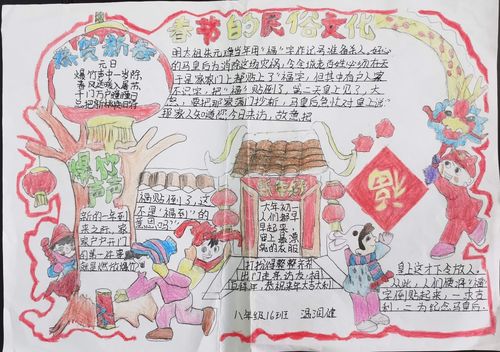 春节的民俗文化
恭贺新春
元日
爆竹声中一岁除
春风送暖入屠苏
千门万户曈曈日
总把新桃换旧符
明太祖朱元璋当年用"福"字作记号准备杀人。好心
的马皇后为消除这场灾祸,令全城老百姓必须在天
于是家家门上都贴上了"福字"但其中有户人家
不识字,把"福"贴倒了。第二天皇上见了,大
马皇后急忙对皇上说"
那家人知道您今日来访,故意把
福贴倒了,这
不是"福到"的
意思吗?"
皇上这才下令放人。
从此,人们便将"福"
字倒贴起来,一求吉
利,二为纪念马皇后。
福
爆竹
声声
新的一年到
来之际,家
家户户开门
的第一件事
就是燃放爆竹
大年初一
人们都早
早起来,
穿上最漂
亮的衣服
打扮得整整齐齐
出门去走访亲友,相
互拜年,恭祝来年大吉大利
八年级16班